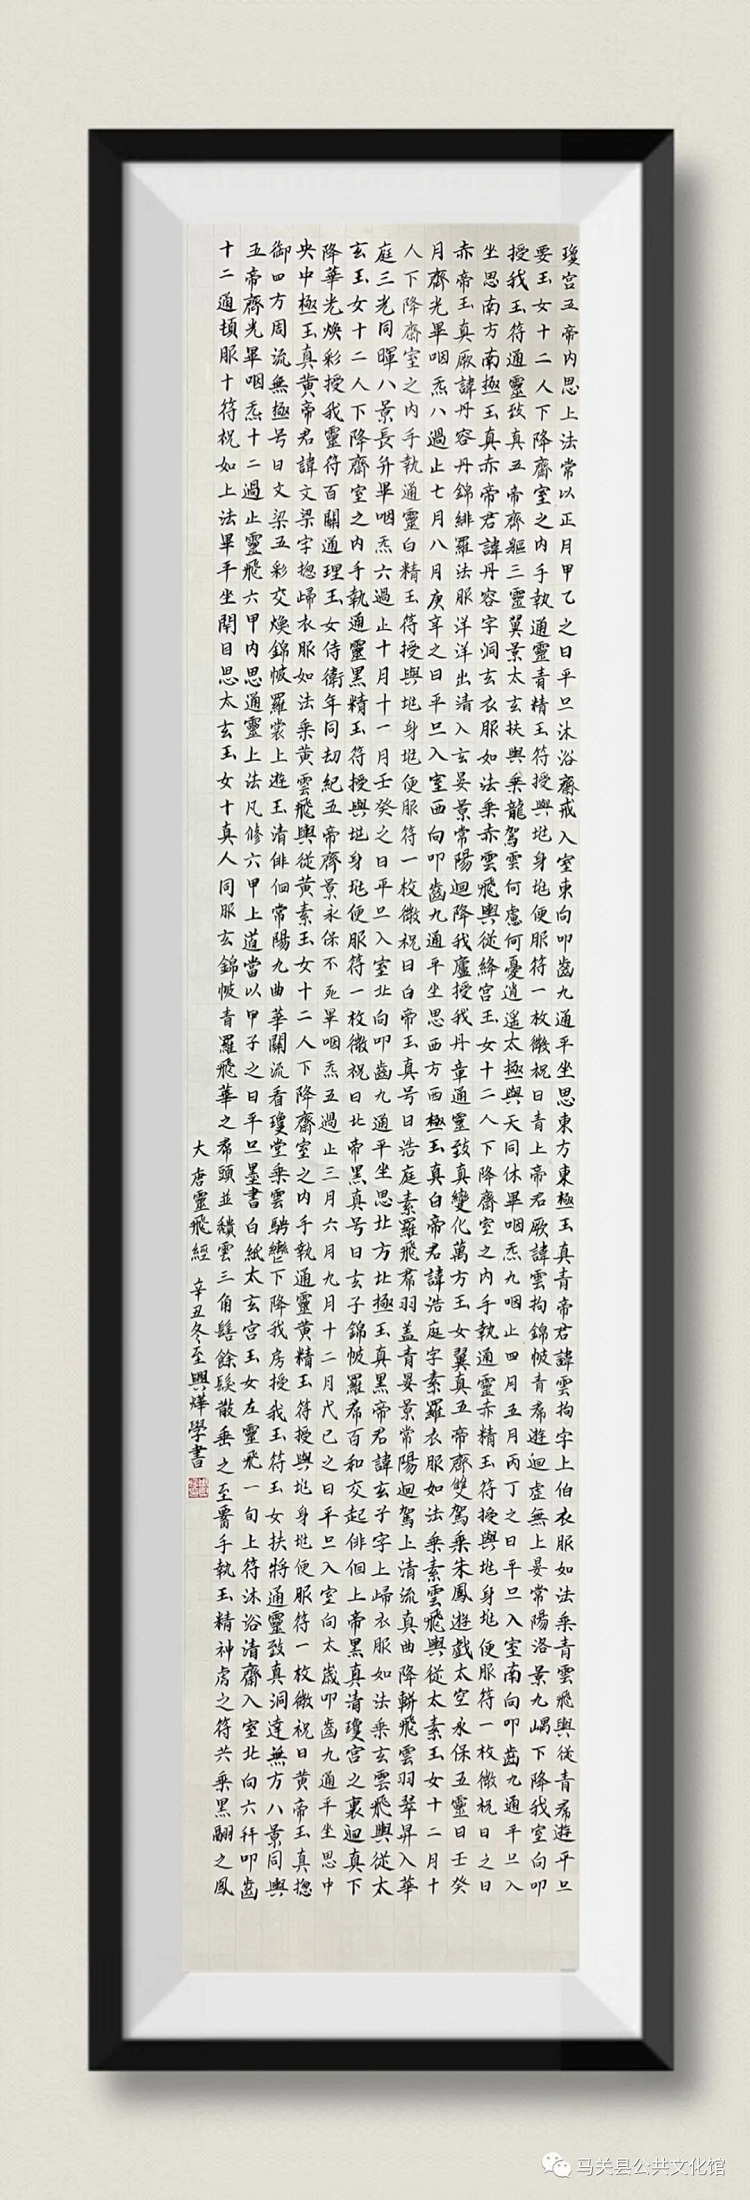 瓊宮五帝內思上法常以正月甲乙之日平旦沐浴齋戒入室東向叩齒九通平坐思東方東極玉真青帝君諱雲拘字上伯衣服如法乘青雲飛輿從青帬遊平旦
要玉女十二人下降齋室之內手執通靈青精玉符授與兆身兆便服符一枚微祝曰青上帝君厥諱雲拘錦帔青帬遊迴虛無上晏常陽洛景九嵎下降我室向叩
授我玉符通靈致真五帝齊軀三靈翼景太玄扶輿乘龍駕雲何慮何憂逍遙太極與天同休畢咽炁九咽止四月五月丙丁之日平旦入室南向叩齒九通平旦入
坐思南方南極玉真赤帝君諱丹容字洞玄衣服如法乘赤雲飛輿從絳宮玉女十二人下降齋室之內手執通靈赤精玉符授與兆身兆便服符一枚微祝曰之日
赤帝玉真厥諱丹容丹錦緋羅法服洋洋出清入玄晏景常陽迴降我廬授我丹章通靈致真變化萬方玉女翼真五帝齊雙駕乘朱鳳遊戲太空永保五靈日壬癸
月齊光畢咽炁八過止七月八月庚辛之日平旦入室西向叩齒九通平坐思西方西極玉真白帝君諱浩庭字素羅衣服如法乘素雲飛輿從太素玉女十二月十
人下降齋室之內手執通靈白精玉符授與兆身兆便服符一枚微祝曰白帝玉真号曰浩庭素羅飛帬羽盖青晏景常陽迴駕上清流真曲降軿飛雲羽翠昇入華
庭三光同暉八景長升畢咽炁六過止十月十一月壬癸之日平旦入室北向叩齒九通平坐思北方北極玉真黑帝君諱玄子字上歸衣服如法乘玄雲飛輿從太
玄玉女十二人下降齋室之內手執通靈黑精玉符授與兆身兆便服符一枚微祝曰北帝黑真号曰玄子錦帔羅帬百和交起俳佪上帝黑真清瓊宮之裏迴真下
降華光煥彩授我靈符百關通理玉女侍衛年同劫紀五帝齊景永保不死畢咽炁五過止三月六月九月十二月戊己之日平旦入室向太歲叩齒九通平坐思中
央中極玉真黃帝君諱文梁字惚歸衣服如法乘黃雲飛輿從黃素玉女十二人下降齋室之內手執通靈黃精玉符授與兆身兆便服符一枚微祝曰黃帝玉真惚
御四方周流無極号曰文梁五彩交煥錦帔羅裳上遊玉清俳佪常陽九曲華關流看瓊堂乘雲騁轡下降我房授我玉符玉女扶將通靈致真洞達無方八景同輿
五帝齊光畢咽炁十二過止靈飛六甲內思通靈上法凡修六甲上道當以甲子之日平旦墨書白紙太玄宮玉女左靈飛一旬上符沐浴清齋入室北向六拜叩齒
十二通頓服十符祝如上法畢平坐閉目思太玄玉女十真人同服玄錦帔青羅飛華之帬頭並穨雲三角髻餘髮散垂之至腰手執玉精神虎之符共乘黑翮之鳳
大唐靈飛經 辛丑冬至興燁學書
马关县公共文化馆